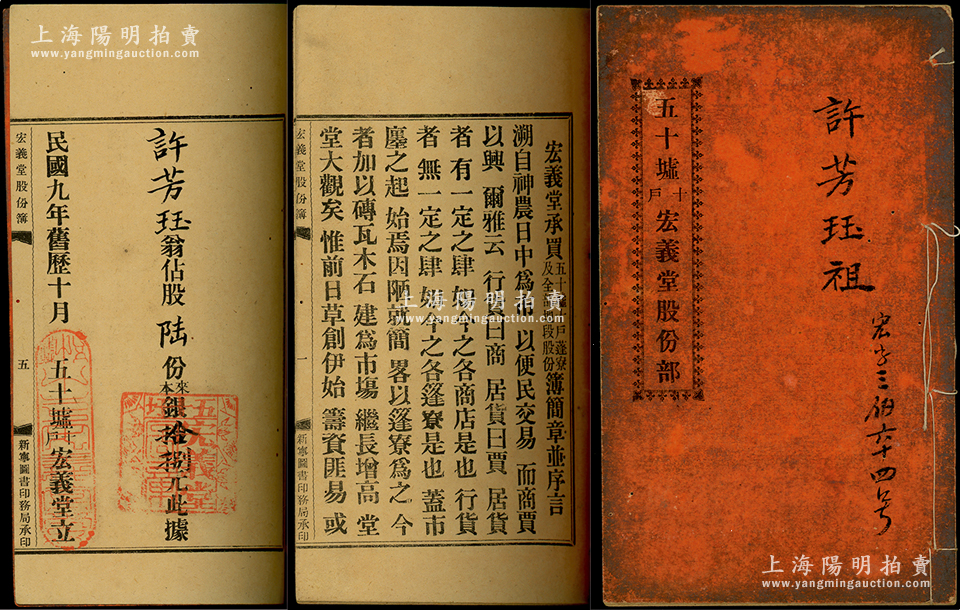 上海陽明拍賣
www.yangmingauction.com
許芳珏祖
五十墟十戶宏義堂股份部
宏字三佰六十四号
宏義堂承買五十墟十戶蓬寮及全部地段股份簿簡章並序言
溯自神農日中為市 以便民交易 而商賈
以興 爾雅云 行貨曰商 居貨曰賈 居貨
者有一定之肆 如今之各商店是也 行貨
者無一定之肆 如今之各篷寮是也 蓋市
廛之起 始焉因陋就簡 畧以篷寮為之 今
者加以磚瓦木石 建為市塲 繼長增高 堂
堂大觀矣 惟前日草創伊始 籌資匪易 或
宏義堂股份簿
一
新寧圖書印務局承印
許芳珏翁佔股陸份來本銀拾捌元此據
民國九年舊歷十月 五十墟十戶宏義堂立
宏義堂股份簿
五
新寧圖書印務局承印
上海陽明拍賣
www.yangmingauction.com
上海陽明拍賣
www.yangmingauction.com